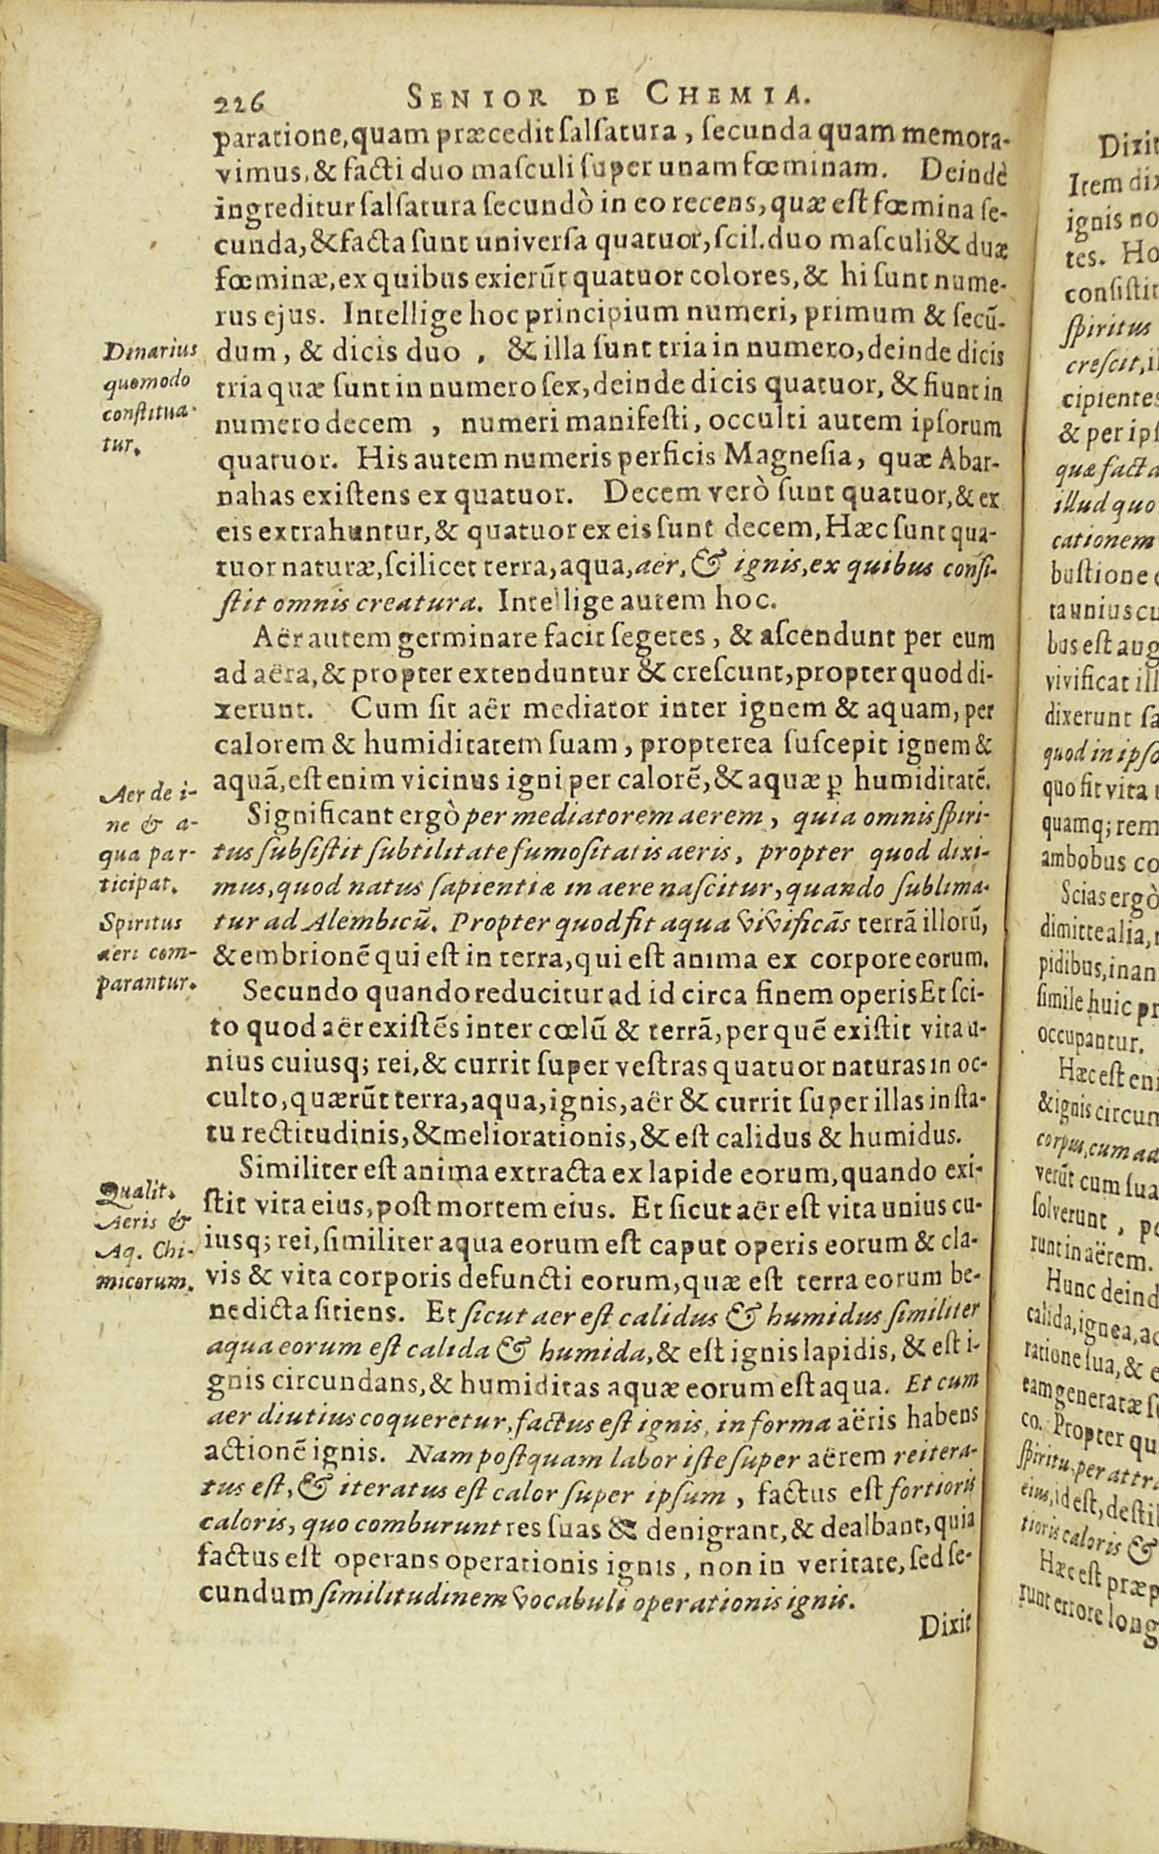 226 SENIOR DE CHEMIA.
paratione, quam præcedit ſalſatura, ſecunda quam memora-
vimus, & facti duo maſculi ſuper unam fœminam. Deindè
ingreditur ſalſatura ſecundò in eo recens, quæ eſt fœmina ſe-
cunda, & facta ſunt univerſa quatuor, ſcil. duo maſculi & duæ
fœminæ, ex quibus exierũt quatuor colores, & hi ſunt nume-
rus ejus. Intellige hoc principium numeri, primum & ſecũ-
dum, & dicis duo, & illa ſunt tria in numero, deinde dicis
tria quæ ſunt in numero ſex, deinde dicis quatuor, & fiunt in
numero decem, numeri manifeſti, occulti autem ipſorum
quatuor. His autem numeris perficis Magneſia, quæ Abar-
nahas exiſtens ex quatuor. Decem verò ſunt quatuor, & ex
eis extrahuntur, & quatuor ex eis ſunt decem, Hæc ſunt qua-
tuor naturæ, ſcilicet terra, aqua, aër, & ignis, ex quibus conſi-
ſtit omnis creatura. Intellige autem hoc.
Denarius
quomodo
conſtitua-
tur.
Aër autem germinare facit ſegetes, & aſcendunt per eum
ad aëra, & propter extenduntur & creſcunt, propter quod di-
xerunt. Cum ſit aër mediator inter ignem & aquam, per
calorem & humiditatem ſuam, propterea ſuſcepit ignem &
aquã, eſt enim vicinus igni per calorẽ, & aquæ ꝑ humiditatẽ.
Significant ergò per mediatorem aerem, quia omnis ſpiri-
tus ſubſiſtit ſubtilitate fumoſitatis aeris, propter quod dixi-
mus, quod natus ſapientiæ in aere naſcitur, quando ſublima-
tur ad Alembicũ. Propter quod fit aqua vivificãs terrã illorũ,
& embrionẽ qui eſt in terra, qui eſt anima ex corpore eorum.
Aer de i-
ne & a-
qua par-
ticipat.
Spiritus
aeri com-
parantur.
Secundo quando reducitur ad id circa finem operis Et ſci-
to quod aër exiſtẽs inter cœlũ & terrã, per quẽ exiſtit vita u-
nius cuiusq; rei, & currit ſuper veſtras quatuor naturas in oc-
culto, quærũt terra, aqua, ignis, aër & currit ſuper illas in ſta-
tu rectitudinis, & meliorationis, & eſt calidus & humidus.
Similiter eſt anima extracta ex lapide eorum, quando exi-
ſtit vita eius, poſt mortem eius. Et ſicut aër eſt vita unius cu-
iusq; rei, ſimiliter aqua eorum eſt caput operis eorum & cla-
vis & vita corporis defuncti eorum, quæ eſt terra eorum be-
nedicta ſitiens. Et ſicut aer eſt calidus & humidus ſimiliter
aqua eorum eſt calida & humida, & eſt ignis lapidis, & eſt i-
gnis circundans, & humiditas aquæ eorum eſt aqua. Et cum
aer diutius coqueretur, factus eſt ignis, in forma aëris habens
actionẽ ignis. Nam poſtquam labor iſte ſuper aërem reitera-
tus eſt, & iteratus eſt calor ſuper ipſum, factus eſt fortioris
caloris, quo comburunt res ſuas & denigrant, & dealbant, quia
factus eſt operans operationis ignis, non in veritate, ſed ſe-
cundum ſimilitudinem vocabuli operationis ignis.
Qualit.
Aeris &
Aq. Chi-
micorum.
Dixit
Dixit
Item
ignis
tes.
conſiſtit
ſpiritus
creſcit,
cipientes
& per
quæ facta
illud quo
cationem
buſtione
bus eſt
vivificat
dixerunt
quod in
quo fit vita
quamq; rem
ambobus
Scias ergò
dimitte alia,
pidibus,
ſimile huic
occupantur.
Hæc eſt
& ignis
corpus, cum
verũt cum ſua
ſolverunt,
runt in aërem.
Hunc
calida, ignea,
ratione ſua, &
eam generatæ
co. Propter
ſpiritu, per
eius, id eſt,
tioris caloris &
Hæc eſt
runt errore